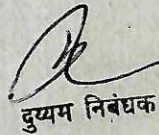 दुय्यम निबंधक